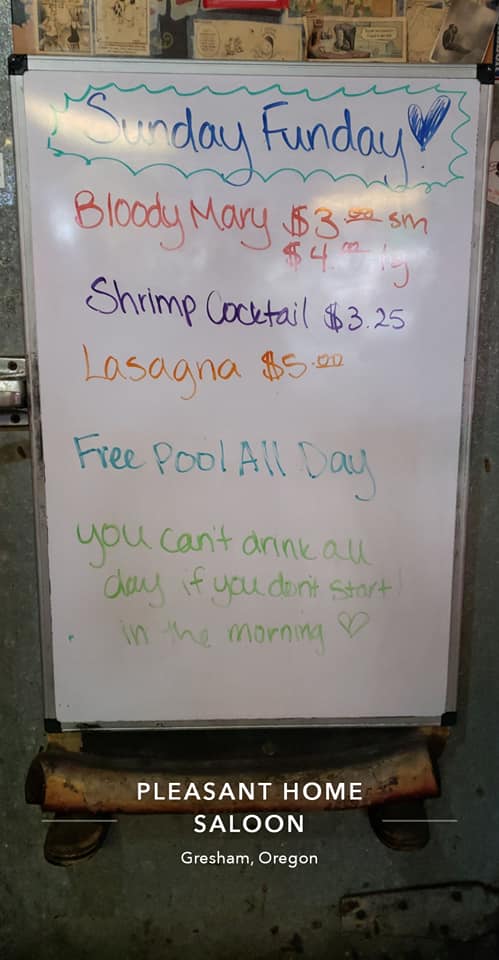 Sunday Funday
Bloody Mary $3.00 sm
$4.00 lg
Shrimp Cocktail $3.25
Lasagna $5.00
Free Pool All Day
you can't drink all
day if you don't start
in the morning
PLEASANT HOME
SALOON
Gresham, Oregon